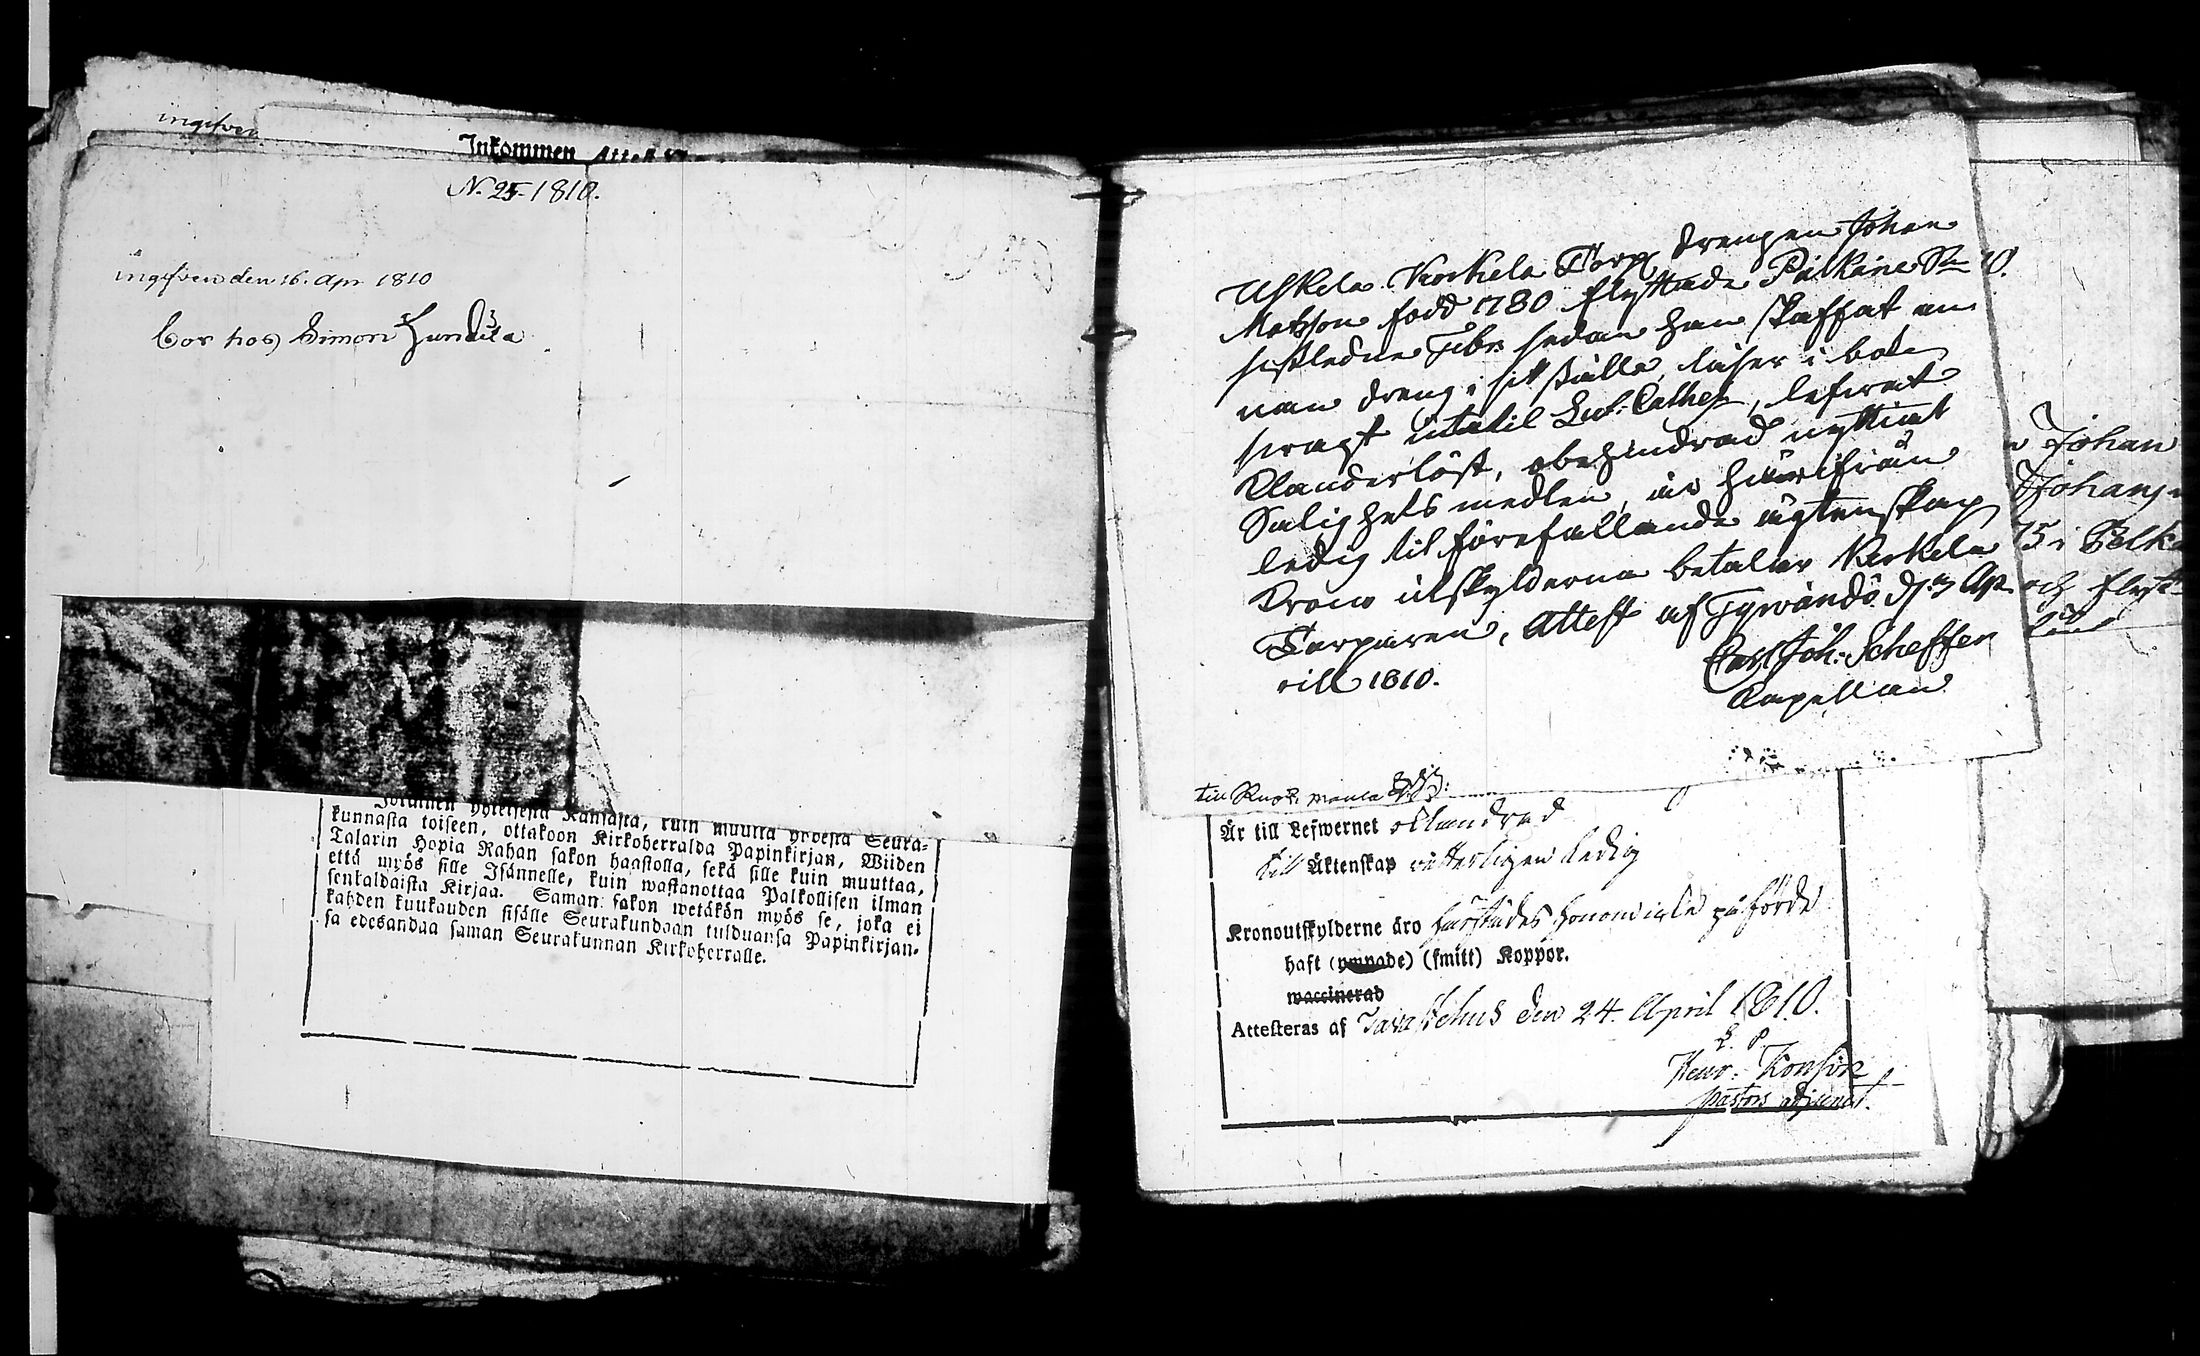 ingifven
Inkommen Attest
N. 25. 1810.
ingifven den 16. Apr. 1810
bor hos Simon
Joeainen yhteisestä Kansasta, kuin muutta yhdestä Seura-
kunnasta toiseen, ottakoon Kirkoherralda Papinkirjan, Wiiden
Talarin Hopia Rahan sakon haastolla, sekä sille kuin muuttaa,
että myös sille Isännelle, kuin wastanottaa Palkollisen ilman
senkaldaista Kirjaa. Saman sakon wetäkön myös se, joka ei
kahden kuukauden sisälle Seurakundaan tulduansa Papinkirjan-
sa edesandaa saman Seurakunnan Kirkoherralle.
Uskela Korkela Torp drengen Johan
Matsson född 1780 flyttade Pälkäne Sn 10.
sistledne 9br sedan han skaffat an-
nan dreng i sit ställe, läser i bok
svagt utatil Lut: Cathes, lefwat
klanderlöst, obehindrad nyttiat
Salighets medlen, är härifrån
ledig til förefallande ägtenskap
Krono utskylderna betalar Korkela
Torparen, Attest af Tyrwändö d. 7 Ap-
rill 1810.
Carl Joh: Scheffer
Capellan
Är till Lefwernet oklandrad
till Äktenskap wetterligen ledig
Kronoutskylderne äro härstädes påförde
haft (ympade) (smitt) Koppor.
waccinerad
Attesteras af Tavastehus den 24. April 1810.
Henr:
pastors adjunct.
Johan
Johans
75 i Pelk
och flyt